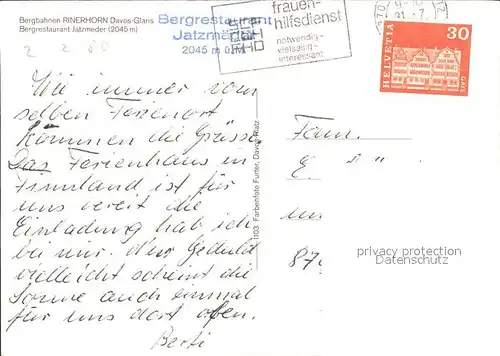 Bergbahnen RINERHORN Davos-Glaris
Bergrestaurant Jatzmeder (2045 m)
Bergrestaurant
Jatzmeder
2045 m ü.M.
frauen-
hilfsdienst
notwendig-
vielseitig-
interessant
HELVETIA 30
Wie immer vom
selben Ferienort
kommen die Grüsse
Das Ferienhaus in
Finnland ist für
uns bereit die
Einladung hab ich
bei mir. Nur Geduld
vielleicht scheint die
Sonne auch einmal
für uns dort oben.
Berti
1103 Farbenfoto Furter, Davos-Platz
Fam.
E
87
privacy protection
watermark